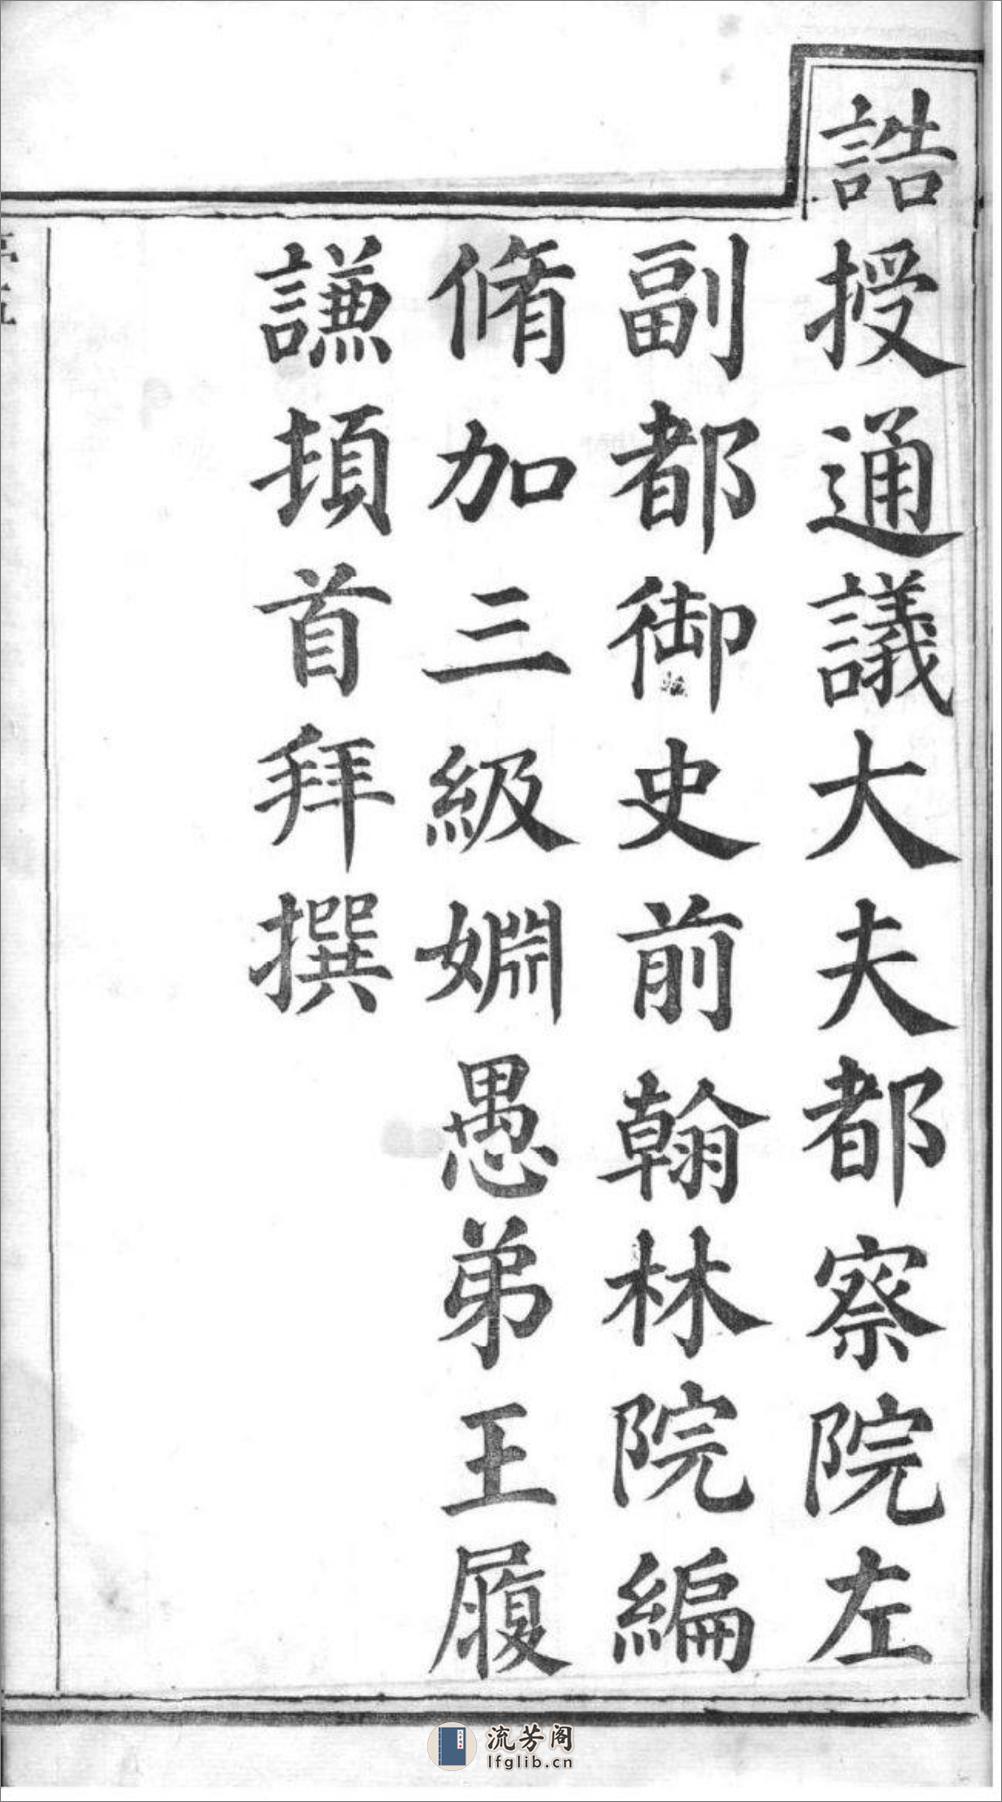 誥授通議大夫都察院左
副都御史前翰林院編
脩加三級姻愚弟王履
謙頓首拜撰
流芳阁
lfglib.cn